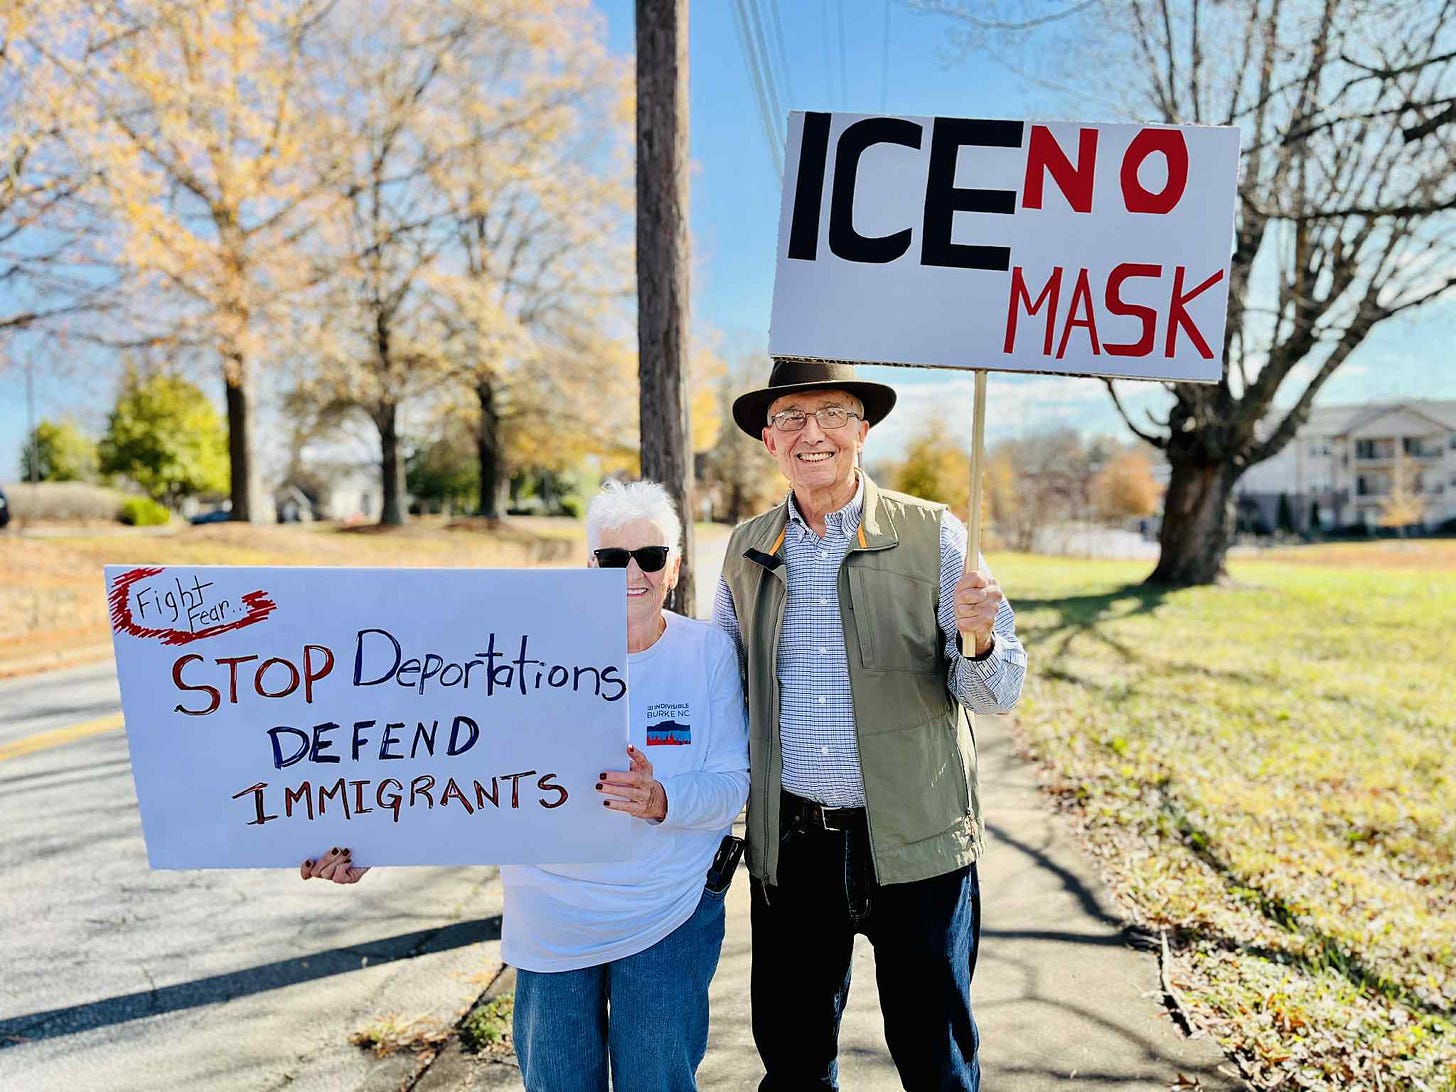 Fight
Fear..
STOP Deportations
DEFEND
IMMIGRANTS
ICE NO
MASK
INDIVISIBLE
BURKE NC